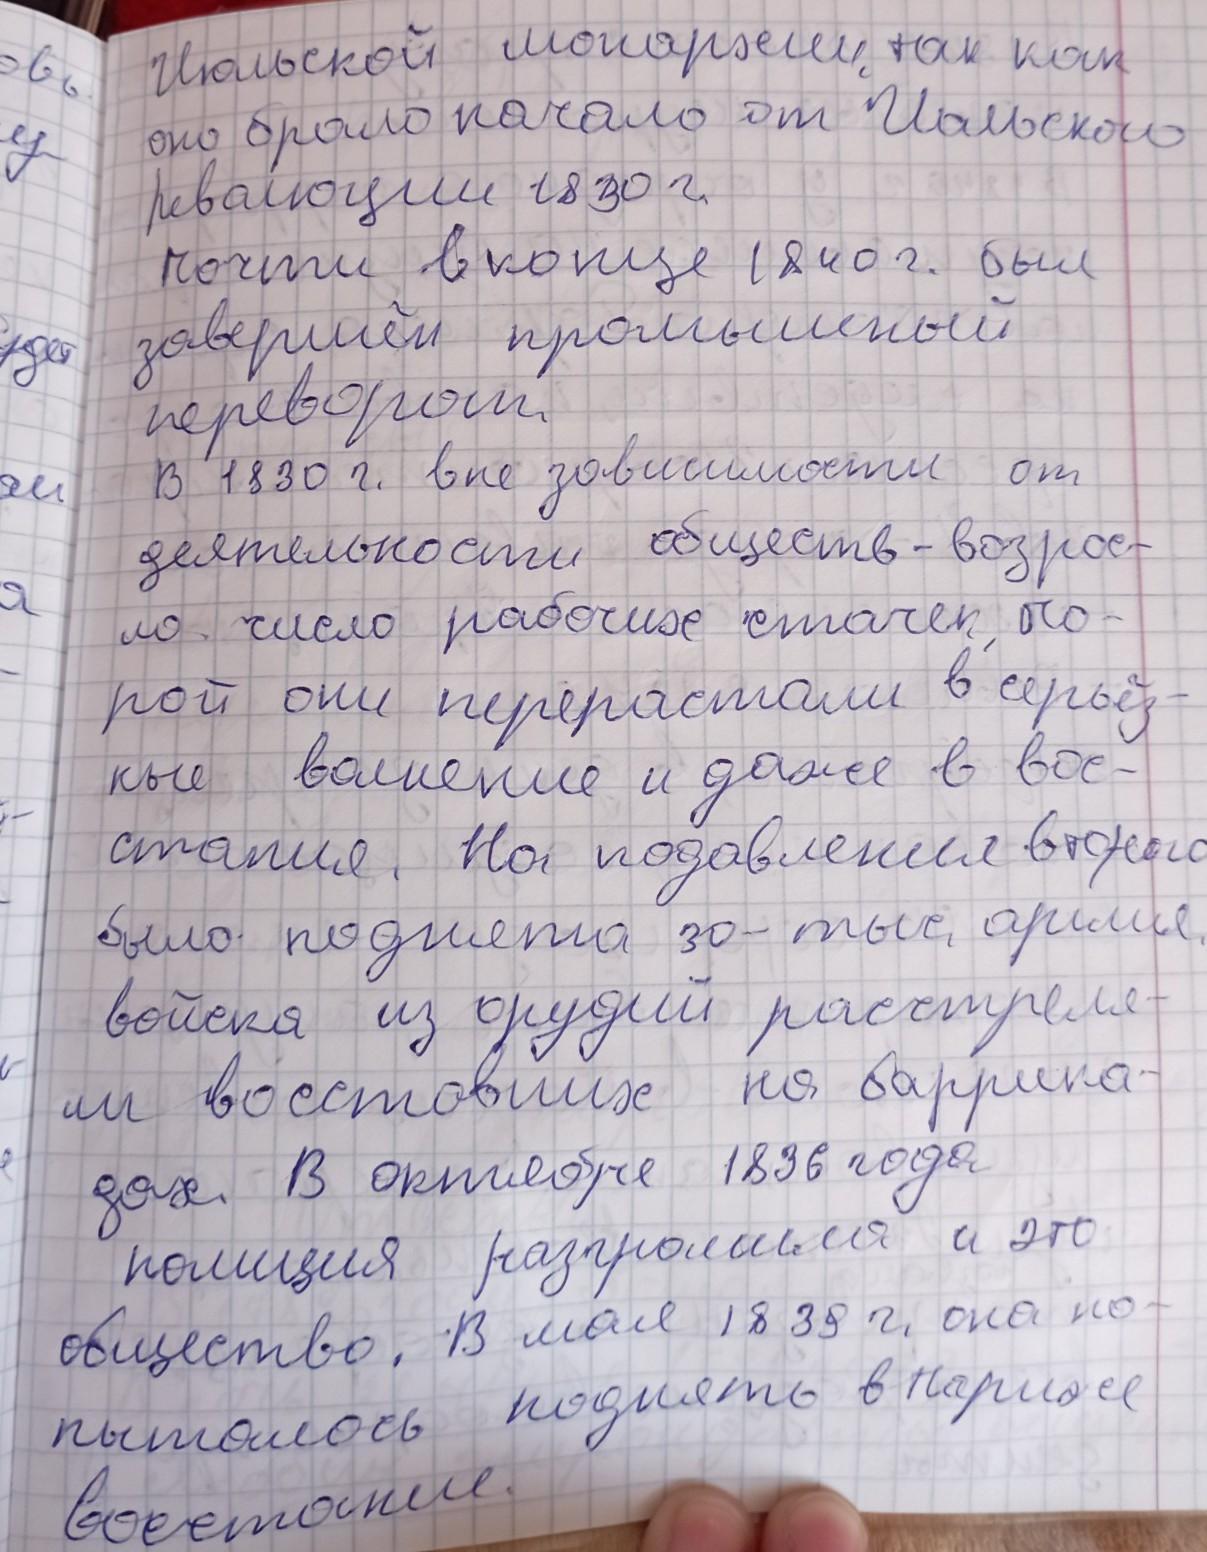 Июльской монархии, так как
оно брало начало от Июльского
революции 1830 г.
Почти в конце 1840 г. был
завершён промышленый
переворот.
В 1830 г. вне зависимости от
деятельности обществ - возрос-
ло число рабочих стачек, по-
рой они перерастали в серьёз-
ные волнение и даже в вос-
стания. На подавления второго
было поднята 30-тыс. армия.
войска из орудий расстреля-
ли восставших на баррика-
дах. В октябре 1836 года
полиция разгромила и это
общество. В мае 1839 г. она по-
пыталось поднять в Париже
восстание.
овь
ну
будет
ам
я